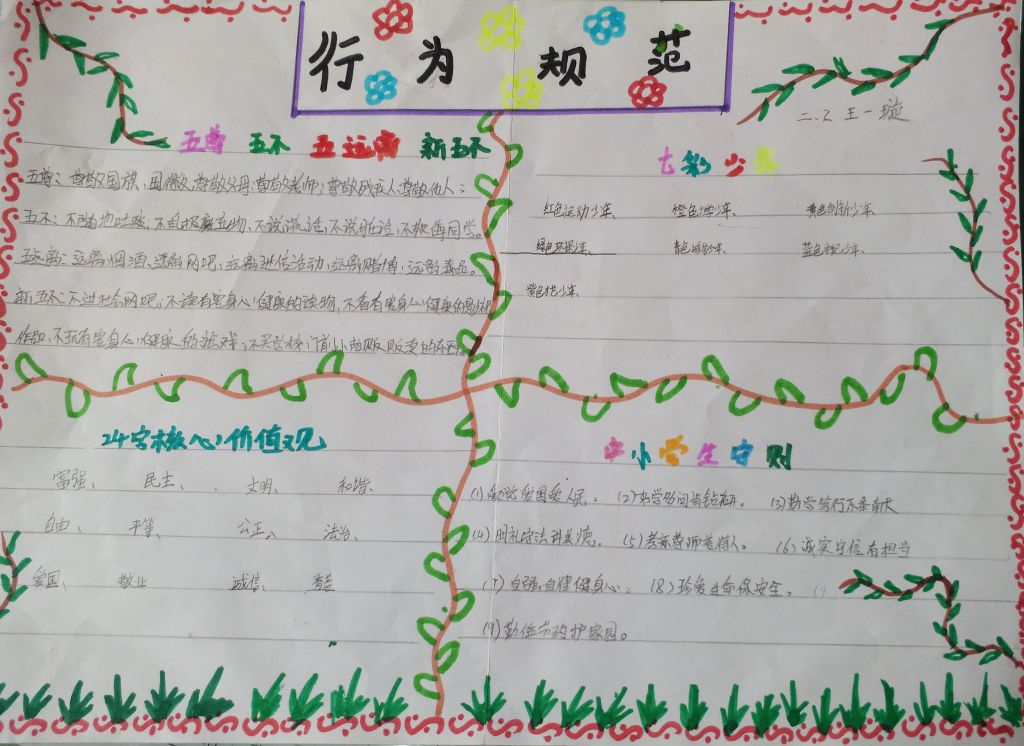 行为规范
二.2 王一璇
五尊 五不 五远离 新五不
五尊:尊敬国旗、国徽、尊敬父母、尊敬老师;尊敬残疾人尊敬他人;
五不:不随地吐痰,不乱扔废弃物,不说谎话,不说脏话,不欺侮同学。
五远离:远离烟酒,远离网吧,远离迷信活动,远离赌博,远离毒品。
新五不:不进社会网吧,不读有害身心健康的读物,不看有害身心健康的影视
作品,不玩有害身心健康的游戏,不买学校门前小商贩贩卖的东西。
七彩少年
红色运动少年、 橙色 少年、 黄色创新少年、
绿色环保少年、 青色 少年、 蓝色 少年、
紫色 少年、
24字核心价值观
富强、 民主、 文明、 和谐、
自由、 平等、 公正、 法治、
爱国、 敬业 诚信、
中小学生守则
(1)爱党爱国爱人民。 (2)好学多问肯钻研。 (3)勤学笃行乐奉献
(4)明礼守法讲美德。 (5)孝亲尊师善待人。 (6)诚实守信有担当
(7)自强自律健身心。 (8)珍爱生命保安全。
(9)勤俭节约护家园。